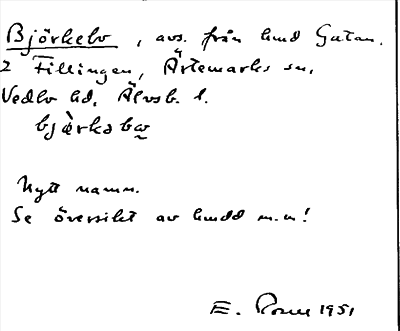 Björkebo, avs. från hmd Gatan.
2 Fillingen, Ärtemarks sn,
Vedbo hd, Älvsb. l.
bjærkəbω
Nytt namn.
Se översikt av hmdd m.m!
E. Rosell 1951